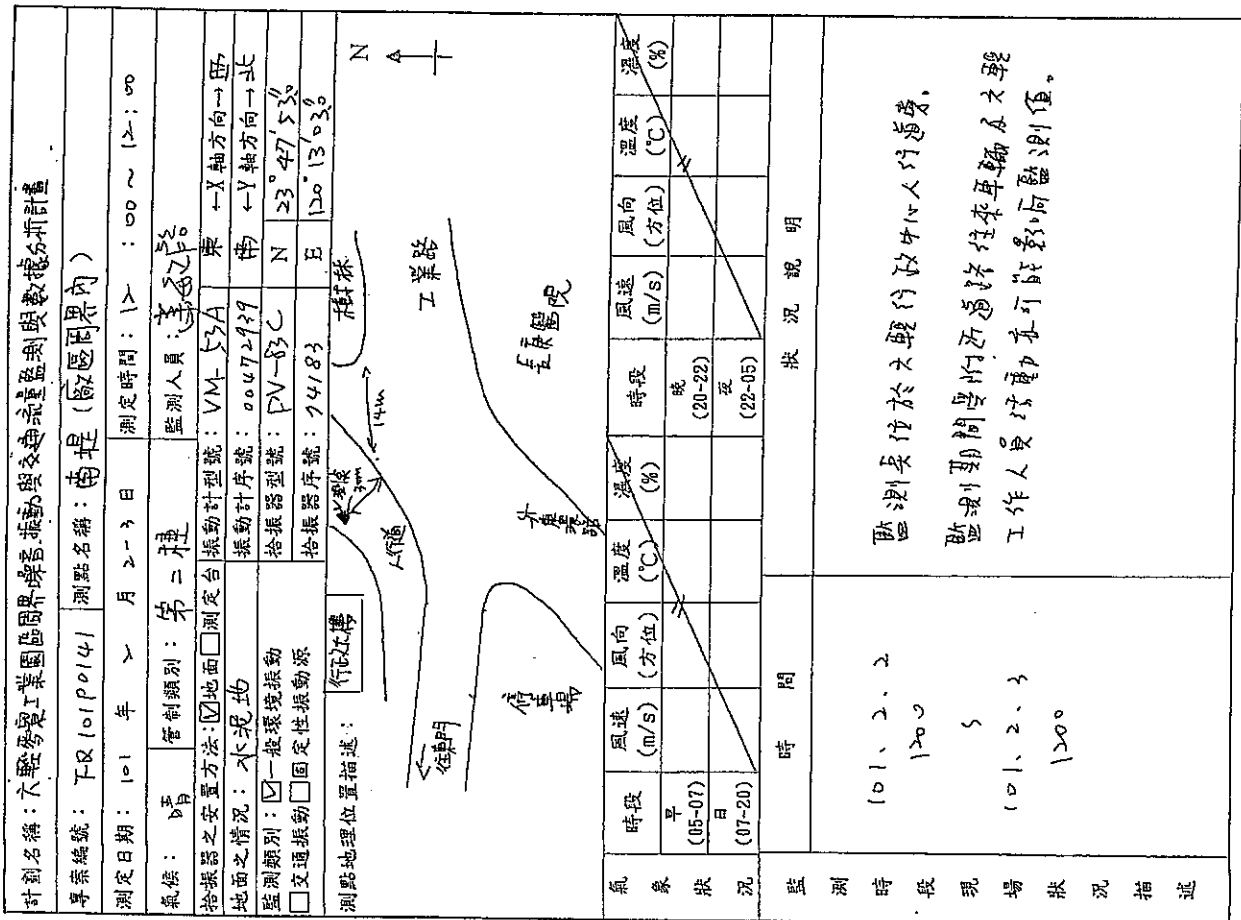 計劃名稱：六輕麥寮工業園區周界噪音、振動與交通流量監測與數據分析計畫
專案編號：FQ101P0141 測點名稱：南堤（廠區周界內）
測定日期：101 年 2 月 2-3 日 測定時間：12：00～12：00
氣候：晴 管制類別：第二種 監測人員：
拾振器之安置方法：☑地面□測定台 振動計型號：VM-53A 東 ←X軸方向→西
地面之情況：水泥地 振動計序號：00472939 南 ←Y軸方向→北
監測類別：☑一般環境振動 拾振器型號：PV-83C N 23°47'53.0"
□交通振動□固定性振動源 拾振器序號：74183 E 120°13'03.0"
測點地理位置描述：
行政大樓
測點
3m
14m
樹林
N
人行道
工業路
往東門
停車場
長庚醫院
氣象狀況
時段 風速(m/s) 風向(方位) 溫度(℃) 濕度(%) 時段 風速(m/s) 風向(方位) 溫度(℃) 濕度(%)
早(05-07) 晚(20-22)
日(07-20) 夜(22-05)
監測時段現場狀況描述
時間 狀況說明
101、2、2
1200
101、2、3
1200
監測點位於六輕行政中心人行道旁。
監測期間受附近道路往來車輛及六輕
工作人員活動亦可能影响監測值。